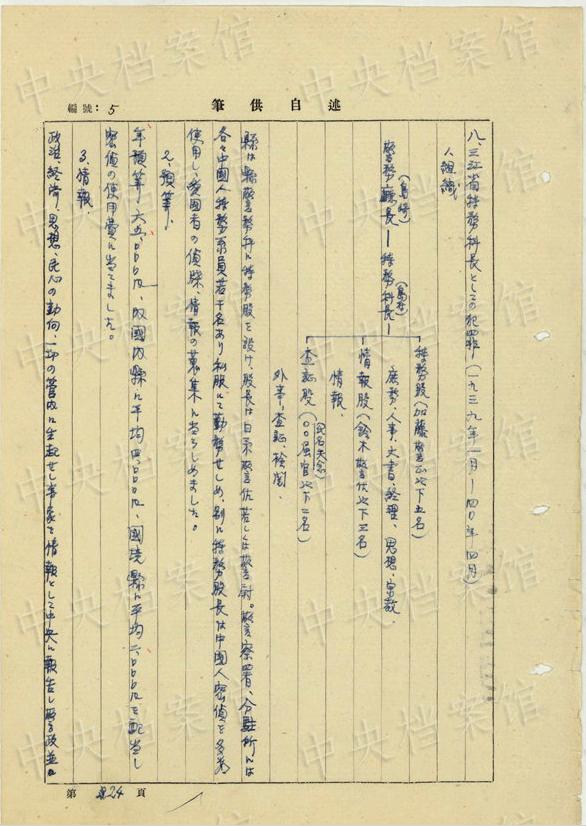 述自供筆
編號：5
八、三江省特務科長としての犯罪（一九三九年一月－四〇年四月）
人組織
（島崎）
警務廳長－特務科長－
特務股（加藤警正以下五名）
庶務、人事、文書、経理、思想、宗教、
情報股（鈴木警佐以下三名）
情報、
査証股（〇〇属官以下二名）
（氏名失念）
外事、査証、検閲、
縣は縣警務科に特務股を設け股長は日系警佐若しくは警尉。警察署、分駐所には
各々中國人特務系員若干名あり私服にて勤務せしめ、別に特務股長は中國人密偵を多数
使用し、愛國者の偵諜、情報の蒐集に当らしめました。
2、預算、
年預算、六五、〇〇〇円、内國内縣に平均四、〇〇〇円、國境縣に平均六、〇〇〇円を配当し
密偵の使用費に当てました。
3、情報、
政治、経済、思想、民心の動向、一切の管内に生起せし事象を情報として中央に報告し警政並に
第24頁
中央档案馆